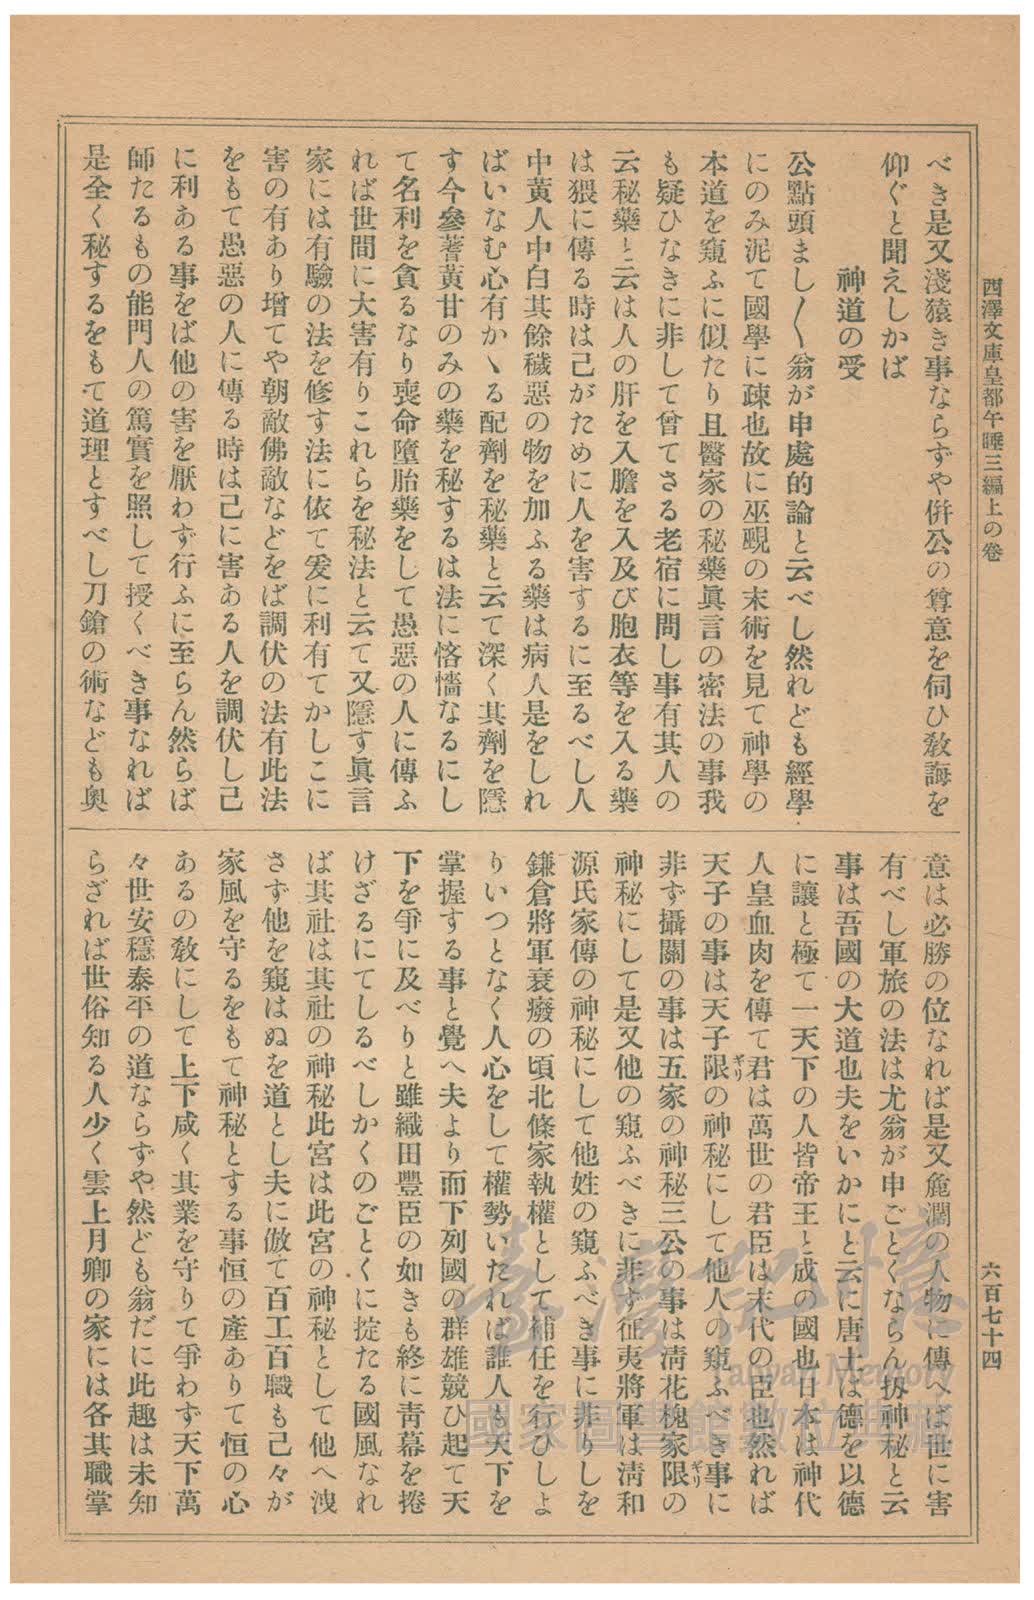 西澤文庫皇都午睡三編上の卷
六百七十四
べき是又淺猿き事ならずや併公の尊意を伺ひ敎誨を
仰ぐと聞えしかば
神道の受
公點頭まし〱翁が申處的論と云べし然れども經學
にのみ泥て國學に疎也故に巫覡の末術を見て神學の
本道を窺ふに似たり且醫家の秘藥眞言の密法の事我
も疑ひなきに非して曾てさる老宿に問し事有其人の
云秘藥と云は人の肝を入膽を入及び胞衣等を入る藥
は猥に傳る時は己がために人を害するに至るべし人
中黃人中白其餘穢惡の物を加ふる藥は病人是をしれ
ばいなむ心有かゝる配劑を秘藥と云て深く其劑を隱
す今參蓍黃甘のみの藥を秘するは法に悋嗇なるにし
て名利を貪るなり喪命墮胎藥をして愚惡の人に傳ふ
れば世間に大害有りこれらを秘法と云て又隱す眞言
家には有驗の法を修す法に依て爰に利有てかしこに
害の有あり增てや朝敵佛敵などをば調伏の法有此法
をもて愚惡の人に傳る時は己に害ある人を調伏し己
に利ある事をば他の害を厭わず行ふに至らん然らば
師たるもの能門人の篤實を照して授くべき事なれば
是全く秘するをもて道理とすべし刀鎗の術なども奥
意は必勝の位なれば是又麁濶の人物に傳へば世に害
有べし軍旅の法は尤翁が申ごとくならん扨神秘と云
事は吾國の大道也夫をいかにと云に唐土は德を以德
に讓と極て一天下の人皆帝王と成の國也日本は神代
人皇血肉を傳て君は萬世の君臣は末代の臣也然れば
天子の事は天子限ギリの神秘にして他人の窺ふべき事に
非ず攝關の事は五家の神秘三公の事は淸花槐家限ギリの
神秘にして是又他の窺ふべきに非ず征夷將軍は淸和
源氏家傳の神秘にして他姓の窺ふべき事に非りしを
鎌倉將軍衰癈の頃北條家執權として補任を行ひしよ
りいつとなく人心をして權勢いたれば誰人も天下を
掌握する事と覺へ夫より而下列國の群雄競ひ起て天
下を爭に及べりと雖織田豐臣の如きも終に靑幕を捲
けざるにてしるべしかくのごとくに掟たる國風なれ
ば其社は其社の神秘此宮は此宮の神秘として他へ洩
さず他を窺はぬを道とし夫に倣て百工百職も己々が
家風を守るをもて神秘とする事恒の產ありて恒の心
あるの敎にして上下咸く其業を守りて爭わず天下萬
々世安穩泰平の道ならずや然ども翁だに此趣は未知
らざれば世俗知る人少く雲上月卿の家には各其職掌
臺灣記憶
Taiwan Memory
國家圖書館數位典藏